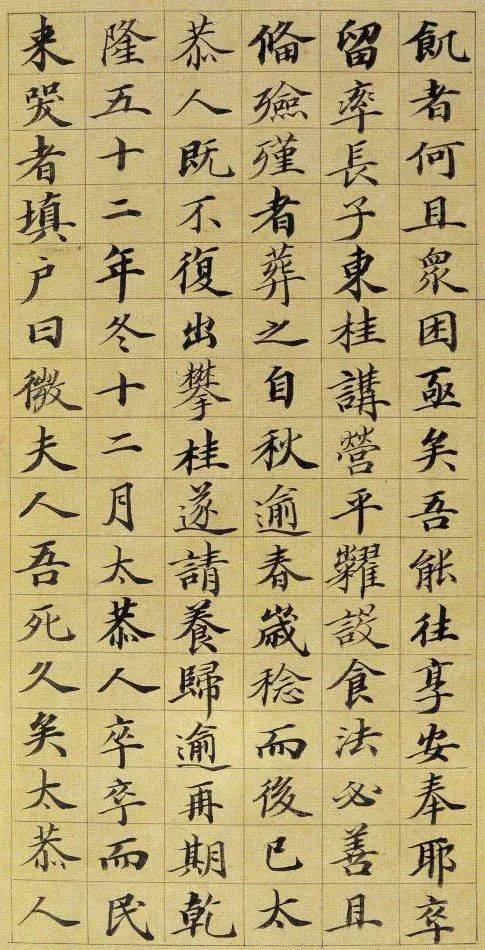 飢者何且衆困亟矣吾能往享安奉耶卒
留率長子東桂講營平糶設食法必善且
俻殮殣者葬之自秋逾春嵗稔而後已太
恭人既不復出攀桂遂請養歸逾再期乾
隆五十二年冬十二月太恭人卒卒而民
来哭者填户曰微夫人吾死久矣太恭人